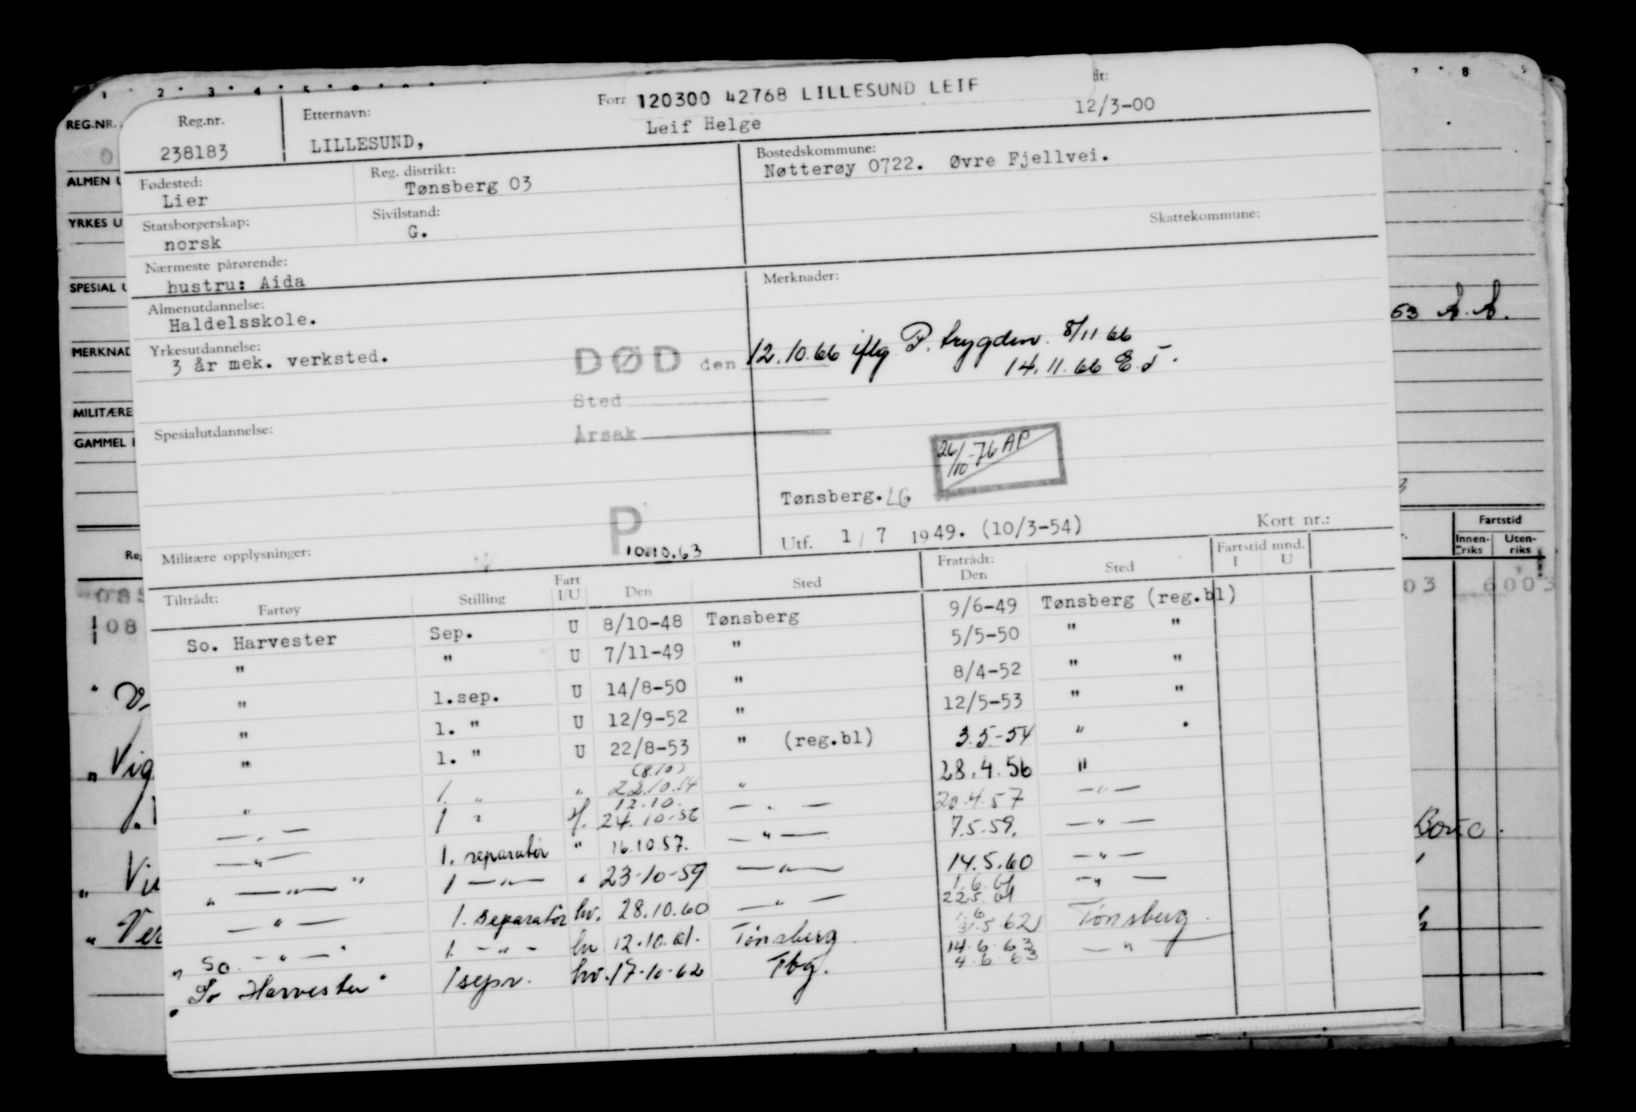 1 2 3 4 5 7 8 9
REG.NR.
ALMEN U
YRKES U
SPESIAL U
MERKNAD
MILITÆRE
GAMMEL
53 A. A.
Fartstid
Innen-riks Uten-riks
03 6003
085
08
Vig
Ver
Reg.nr. Etternavn: Forn 120300 42768 LILLESUND LEIF dt:
238183 LILLESUND, Leif Helge 12/3-00
Fødested: Reg. distrikt: Bostedskommune:
Lier Tønsberg 03 Nøtterøy 0722. Øvre Fjellvei.
Statsborgerskap: Sivilstand: Skattekommune:
norsk G.
Nærmeste pårørende: Merknader:
hustru: Aida
Almenutdannelse:
Haldelsskole.
Yrkesutdannelse:
3 år mek. verksted.
DØD den 12.10.66 iflg P. trygden 8/11 66
14.11.66 E.J.
Sted
Årsak
Spesialutdannelse:
26/10-76 AP
Tønsberg. LG
P
10.10.63
Utf. 1/7 1949. (10/3-54) Kort nr.:
Militære opplysninger:
Tiltrådt: Fratrådt: Fartstid mnd.
Fartøy Stilling Fart I/U Den Sted Den Sted I U
So. Harvester Sep. U 8/10-48 Tønsberg 9/6-49 Tønsberg (reg.bl)
" " U 7/11-49 " 5/5-50 " "
" 1.sep. U 14/8-50 " 8/4-52 " "
" 1. " U 12/9-52 " 12/5-53 " "
" 1. " U 22/8-53 " (reg.bl) 3.5-54 " "
" 1. " " (8/10) 22.10.54 " 28.4.56 "
— " — 1 " 12.10. 24.10-56 — " — 20.4.57 — " —
— " — 1. separatør " 16.10.57. — " — 7.5.59. — " —
" — " — " 1 — " — " 23-10-59 — " — 14.5.60 — " —
— " — 1. separatør hv. 28.10.60 — " — 1.6.61 22.5.61 — " —
" So. — " — " 1. - " - hv 12.10.61. Tønsberg 5.62 Tønsberg
" So Harvester " 1 sepr. hv. 17-10-62 Tbg. 14.6.63 4.6.63 — " —